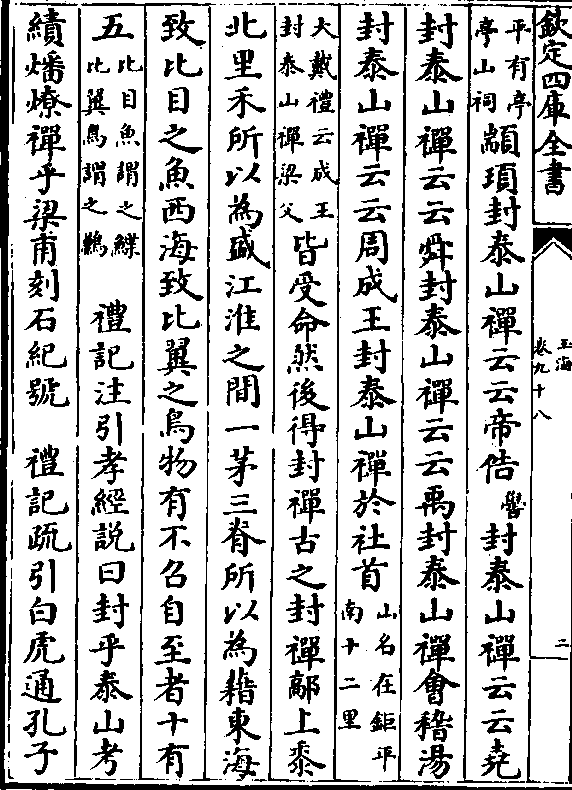 欽定四庫全書
玉海
卷九十八
二
平有亭
亭山祠
顓頊封泰山禪云云帝俈嚳封泰山禪云云堯
封泰山禪云云舜封泰山禪云云禹封泰山禪會稽湯
封泰山禪云云周成王封泰山禪於社首
山名在鉅平
南十二里
大戴禮云成王
封泰山禪梁父
皆受命然後得封禪古之封禪鄗上黍
北里禾所以為盛江淮之間一茅三脊所以為藉東海
致比目之魚西海致比翼之鳥物有不召自至者十有
五
比目魚謂之鰈
比翼鳥謂之鶼
禮記注引孝經說曰封乎泰山考
績燔燎禪乎梁甫刻石紀號 禮記疏引白虎通孔子